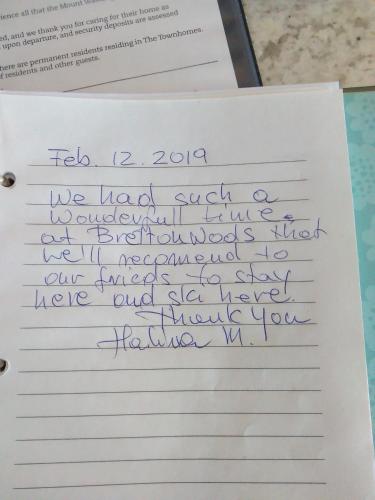 rience all that the Mount Wa
ed, and we thank you for caring for their home as
upon departure, and security deposits are assessed
here are permanent residents residing in The Townhomes.
f residents and other guests.
Feb. 12. 2019
We had such a
wonderfull time
at Bretton Woods that
we'll recomend to
our frieds to stay
here and ski here.
Thank You
Halina M.